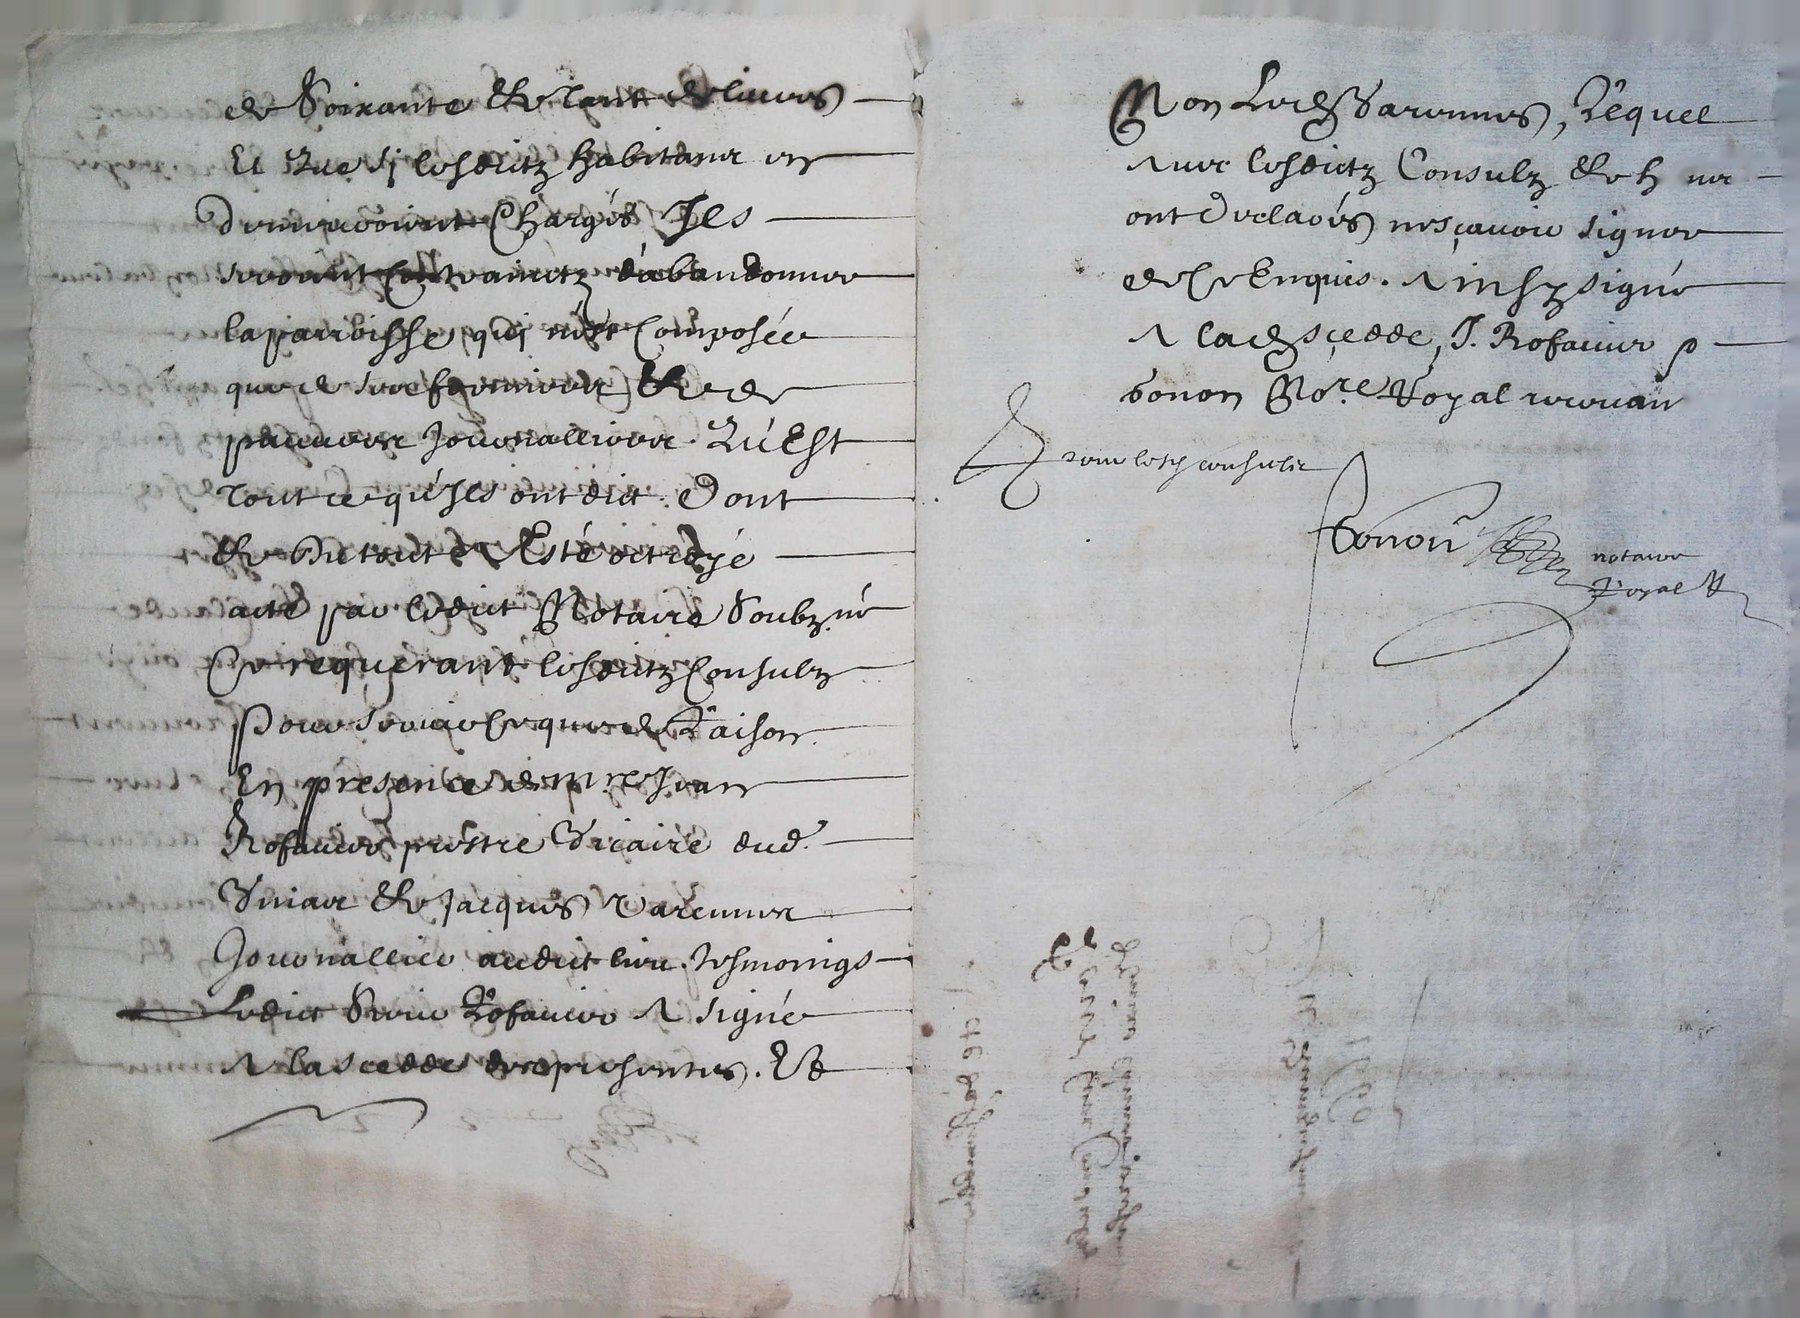 de Soixante & tant de livres
Et que si lesdictz habitans en
demeuroient Chargés Jls
seroient Contrainctz d'abandonner
la parroisse qui n'est Composée
que de  & de
pauvres Journalliers. Qu'Est
tout ce qu'Jls ont dict. Dont
& Du tout a Esté octroyé
acte par ledict Notaire Soubz.né
Ce requerant lesdictz Consulz
Pour servir Ce que de Raison.
En presence de m.re Jean
Rofavier prestre Vicaire dud.
 & Jacques Varennes
Journallier audict lieu. Tesmoings
Ledict Sieur Rofavier A signé
A la scedde des presentes. Et
Non Led. Varennes, Lequel
Avec lesdictz Consulz & h. ne
ont Declarés ne sçavoir signer
de Ce Enquis. Ainsy signé
A lad. scedde, J. Rofavier p
Bonon No.re Royal recevant
Pour lesd. consulz
Bonon
notaire
Royal